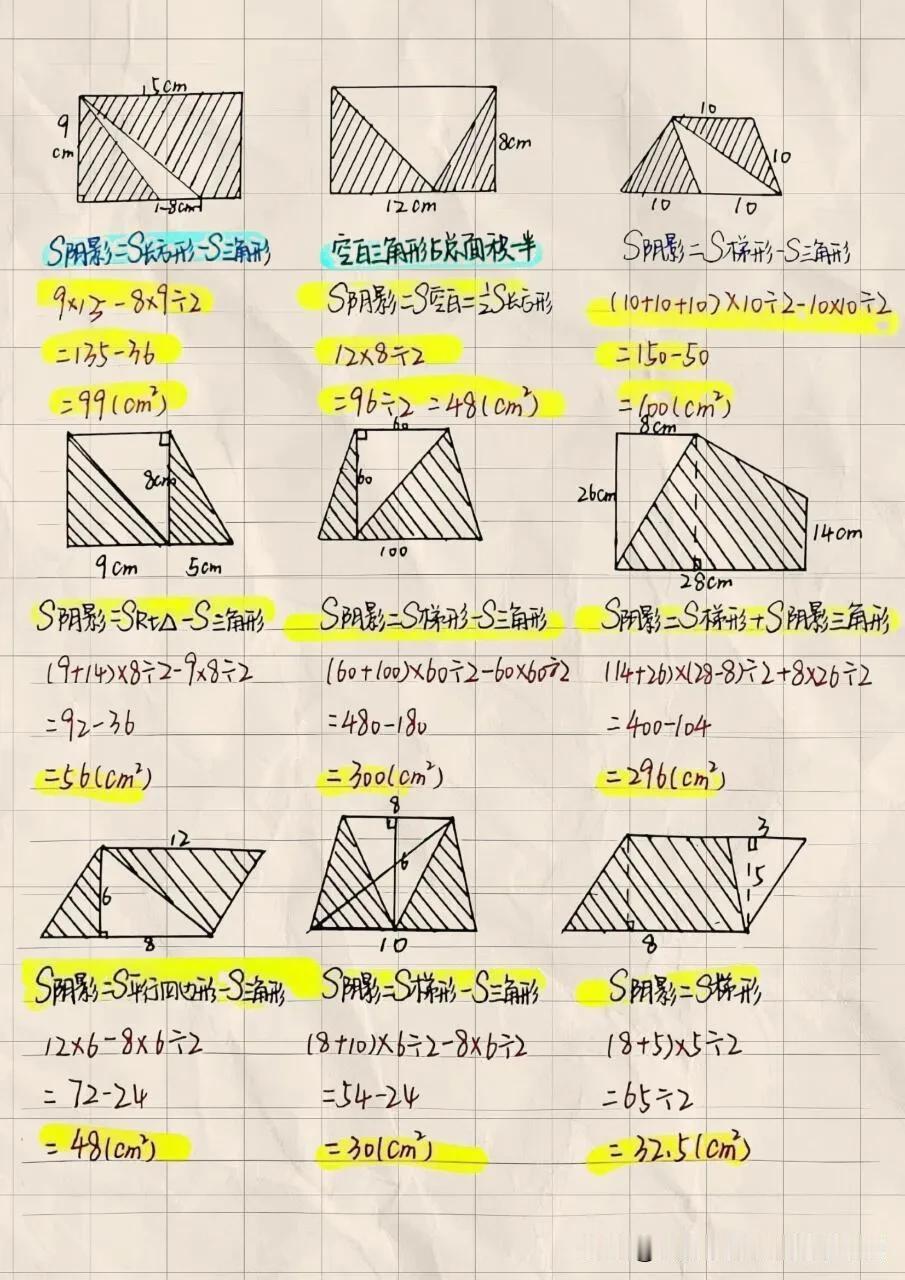 15cm
9
cm
8cm
S阴影=S长方形-S三角形
9×15-8×9÷2
=135-36
=99(cm²)
8cm
12cm
空白三角形占总面积一半
S阴影=S空白=½S长方形
12×8÷2
=96÷2=48(cm²)
10
10
10
10
S阴影=S梯形-S三角形
(10+10+10)×10÷2-10×10÷2
=150-50
=100(cm²)
8cm
9cm
5cm
S阴影=SRt△-S三角形
(9+14)×8÷2-9×8÷2
=92-36
=56(cm²)
60
60
100
S阴影=S梯形-S三角形
(60+100)×60÷2-60×60÷2
=480-180
=300(cm²)
8cm
26cm
14cm
28cm
S阴影=S梯形+S阴影三角形
(14+26)×(28-8)÷2+8×26÷2
=400-104
=296(cm²)
12
6
8
S阴影=S平行四边形-S三角形
12×6-8×6÷2
=72-24
=48(cm²)
8
6
10
S阴影=S梯形-S三角形
(8+10)×6÷2-8×6÷2
=54-24
=30(cm²)
3
5
8
S阴影=S梯形
(8+5)×5÷2
=65÷2
=32.5(cm²)